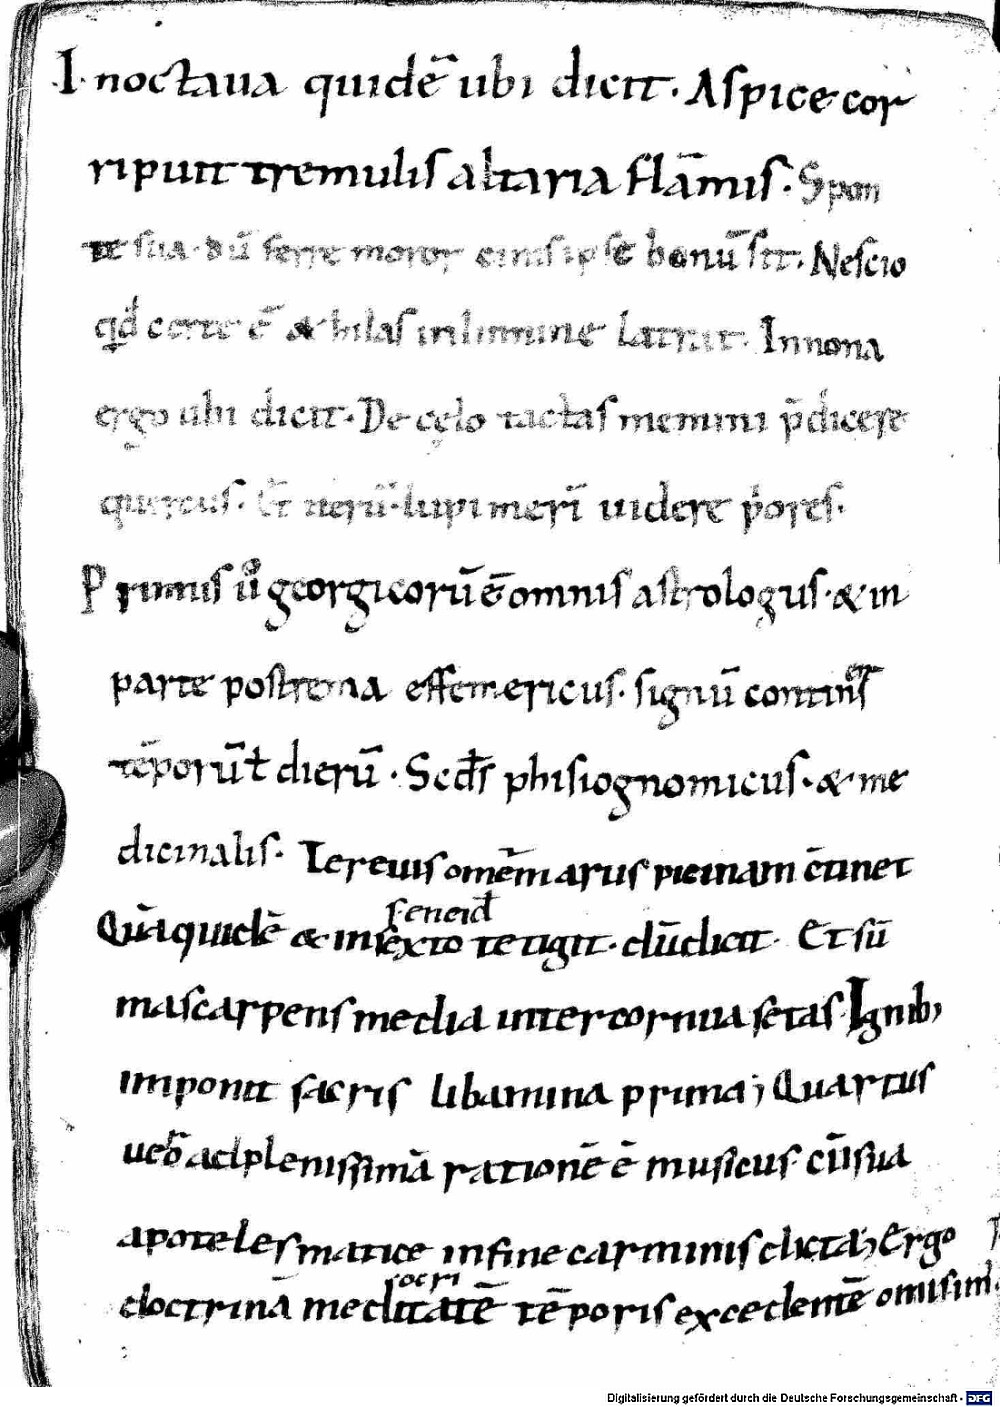 I noctaua quidē ubi dicit. Aspice cor
ripuit tremulis altaria flāmis. Spon
te sua. dū ferre moror cinis ipse bonū sit. Nescio
qđ certe ē & hilas in limine latrat. In nona
ergo ubi dicit. De cęlo tactas memini p̄dicere
quercus. Et nerū. lupi meri uidere p̓ores.
Primis ū georgicorū ē omnis astrologus. & in
parte postrema effemericus. signū contin
tēporū dierū. Scđs phisiognomicus. & me
dicinalis. arus picinam c̄tinet
Quā quidē & in sexto tetigit. dū dicit. Et sū
eneid
mas carpens media inter cornua setas Ignib;
imponit sacris libamina prima; Quartus
ad plenissimā rationē ē musicus cū sua
apotelesmatice in fine carminis dicta; Ergo
doctrinā tē poris excedentē omisim
socri
Digitalisierung gefördert durch die Deutsche Forschungsgemeinschaft - DFG